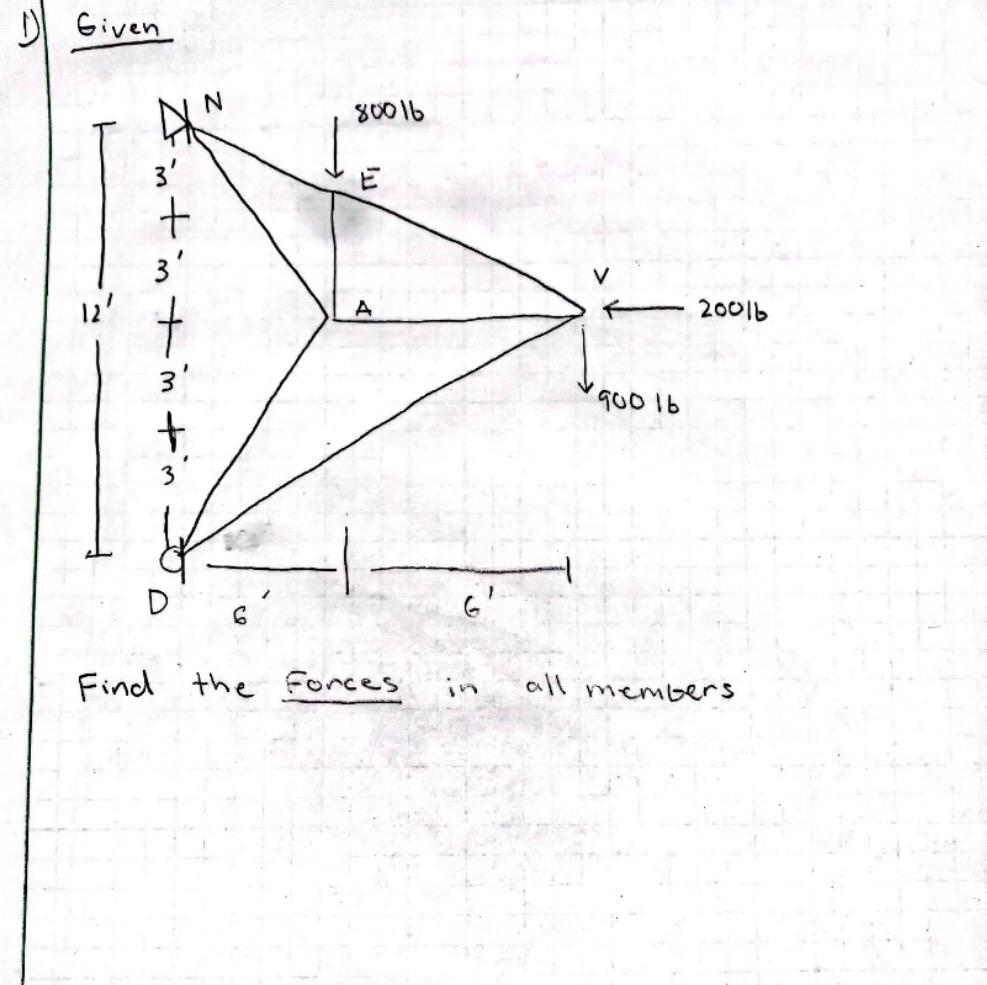 1) Given
N
800 lb
3'
E
3'
V
12'
A
200lb
3'
900 lb
3'
D
6'
6'
Find the Forces in all members